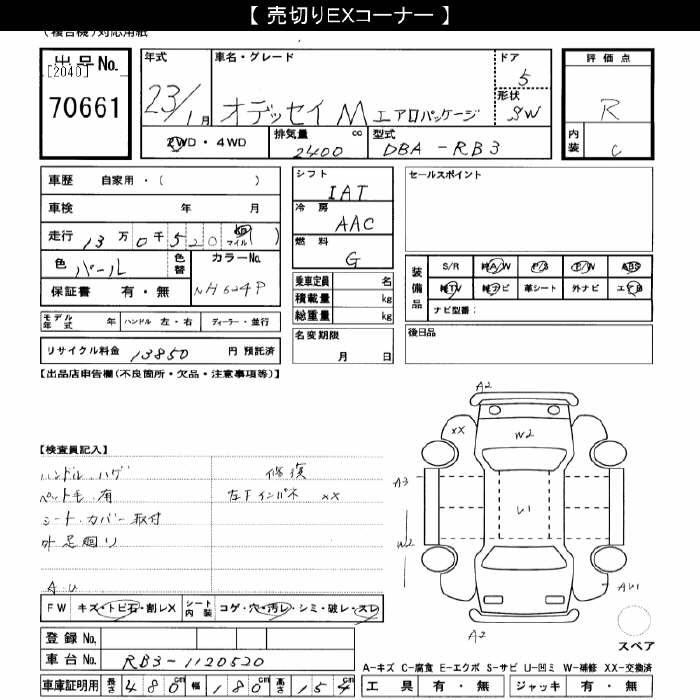 【 売切りEXコーナー 】
(複合機)対応用紙
出品No.
[2040]
70661
年式
23/1月
車名・グレード
オデッセイ M エアロパッケージ
ドア
5
形状
SW
評価点
R
内装
C
2WD・4WD
排気量 cc
2400
型式
DBA-RB3
車歴 自家用・( )
車検 年 月
走行 13万0千520 km マイル ( )
色 パール
色替
カラーNo.
NH624P
保証書 有・無
シフト
IAT
冷房
AAC
燃料
G
乗車定員 名
積載量 kg
総重量 kg
セールスポイント
装備品
S/R 純A/W P/S P/W ABS
純TV 純ナビ 革シート 外ナビ エアB
ナビ型番:
モデル年式 年 ハンドル 左・右 ディーラー・並行
リサイクル料金 13850 円 預託済
名変期限
月 日
後日品
【出品店申告欄(不良箇所・欠品・注意事項等)】
【検査員記入】
ハンドル.ハゲ
ペット毛.有
シート.カバー取付
外足廻り
A.U
修復
左Fインパネ XX
A2
XX
W2
A3
U1
W2
AU1
A2
スペア
FW キズ・トビ石・割レX
シート内装 コゲ・穴・汚レ・シミ・破レ・スレ
登録No.
車台No. RB3-1120520
車庫証明用 長さ 480cm 幅 180cm 高さ 154cm
A-キズ C-腐食 E-エクボ S-サビ U-凹ミ W-補修 XX-交換済
工具 有・無 ジャッキ 有・無